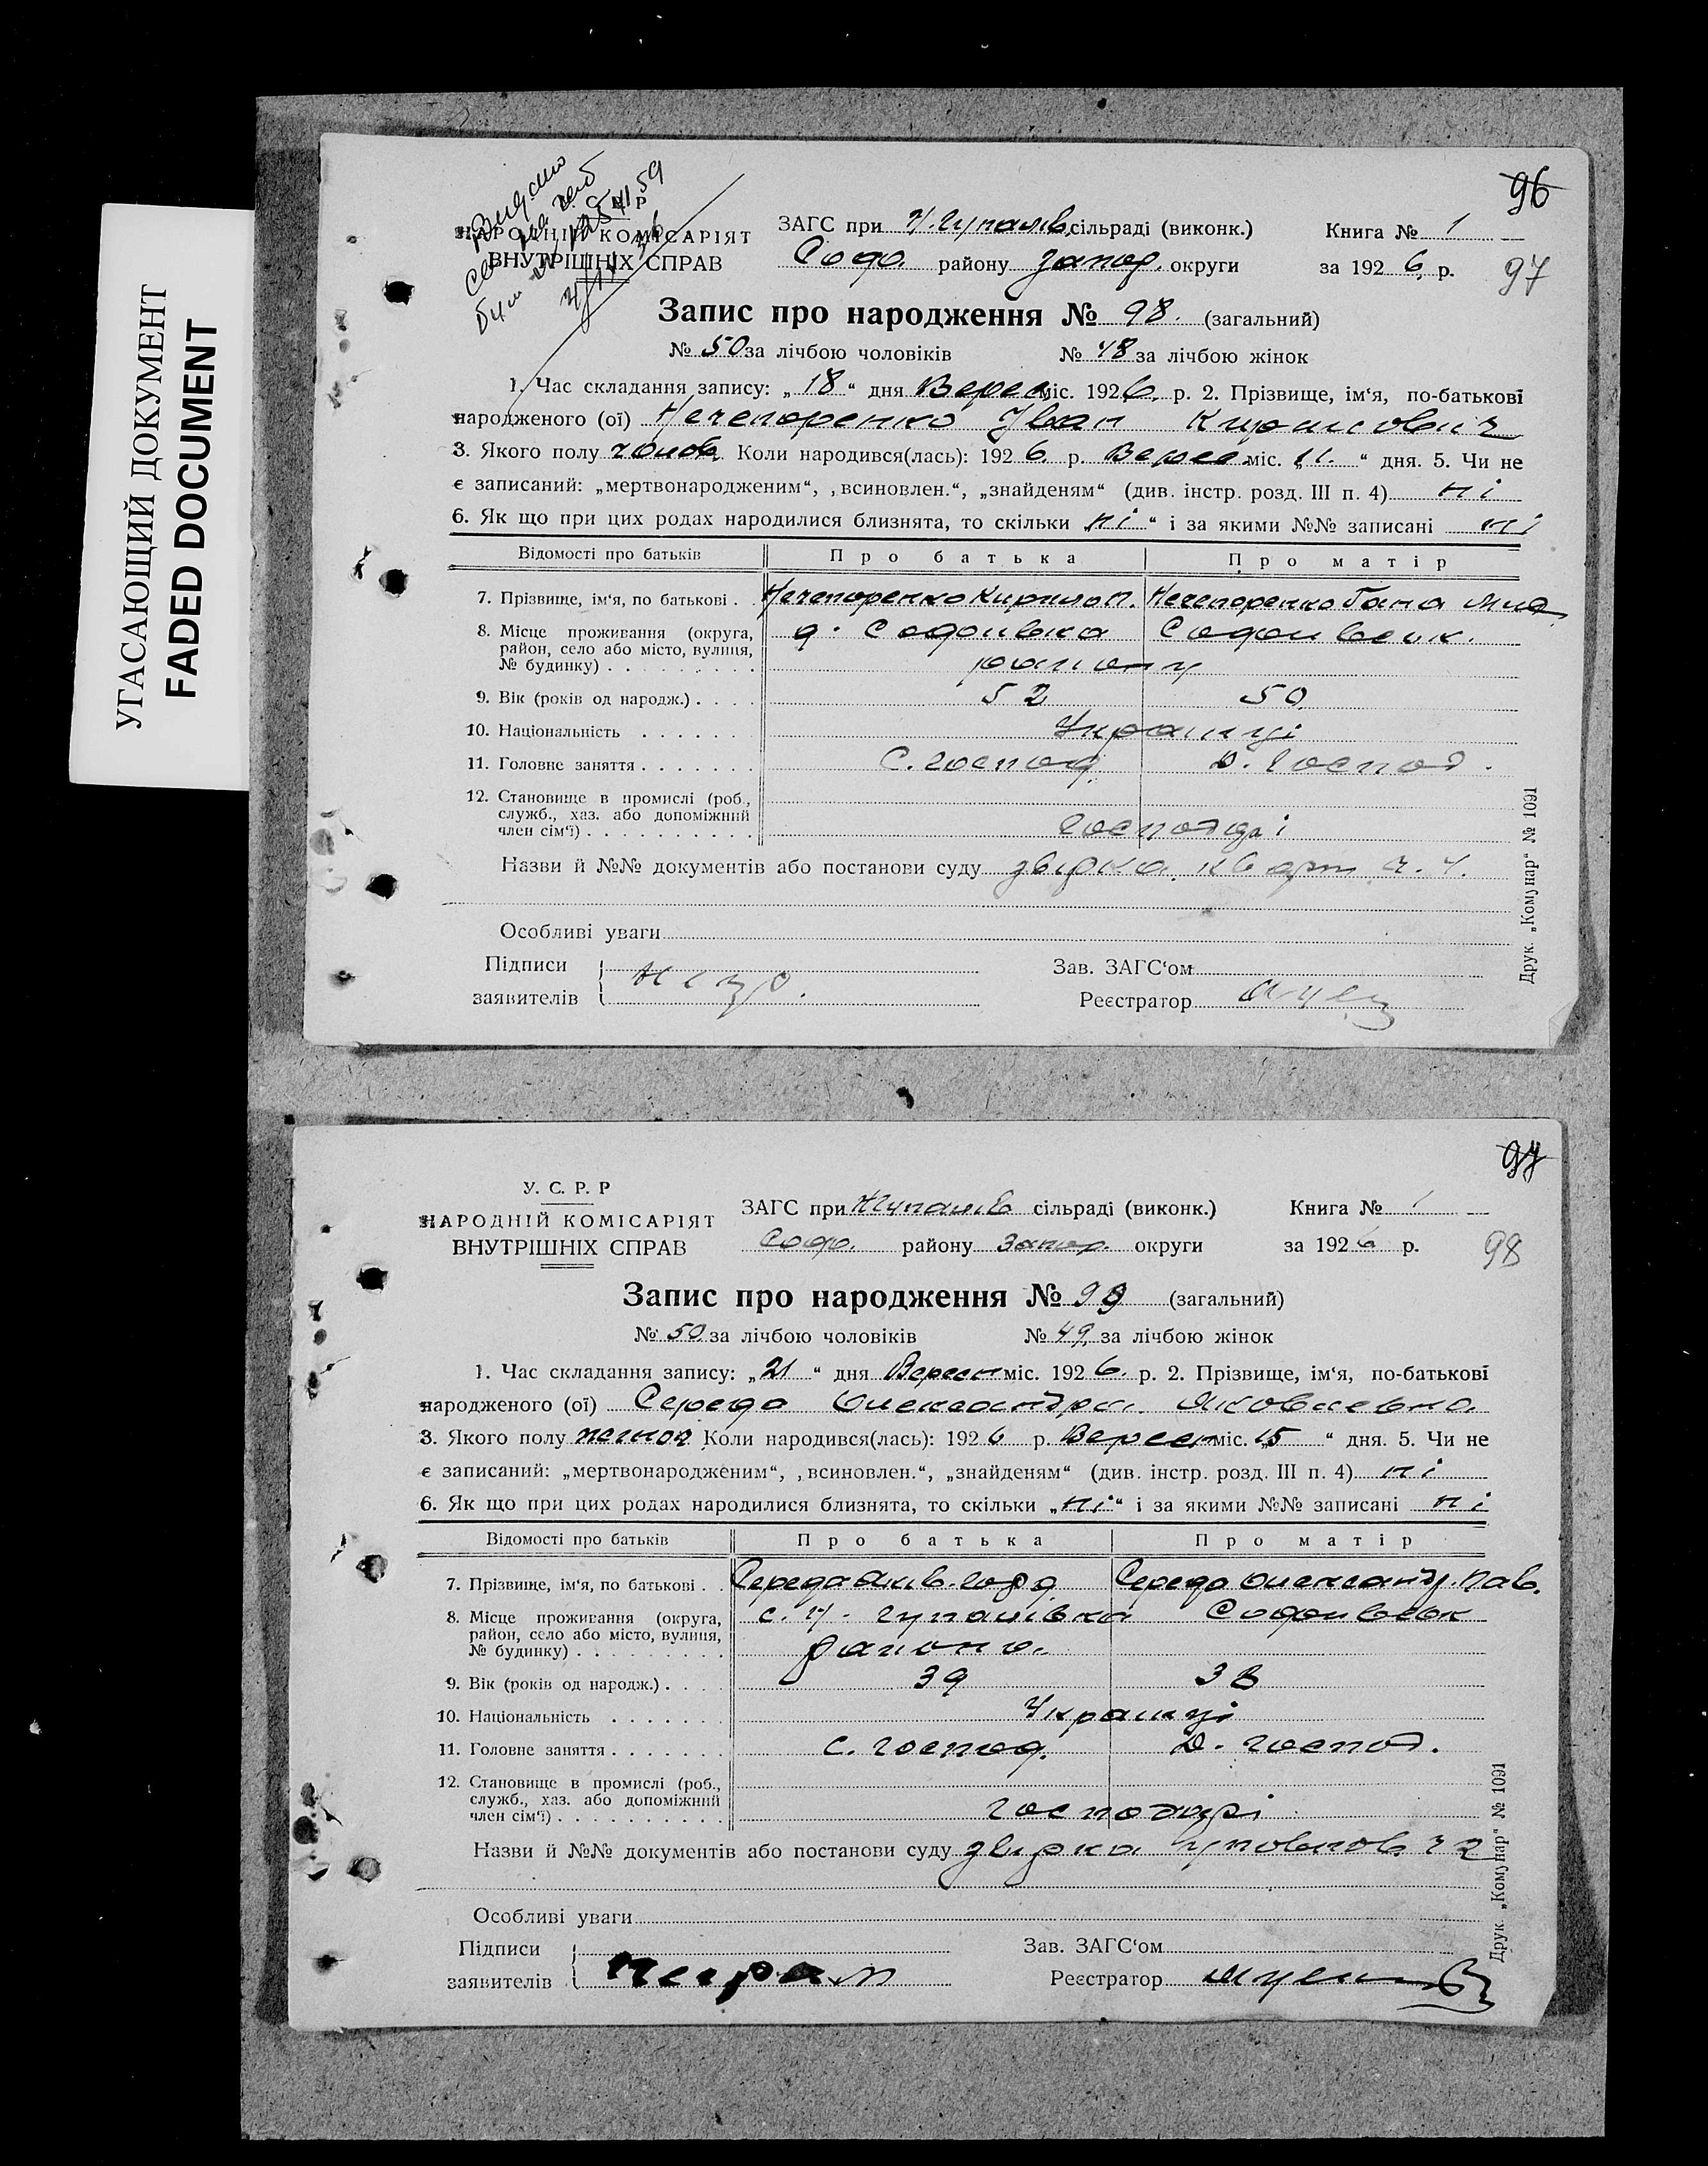 УГАСАЮЩИЙ ДОКУМЕНТ
FADED DOCUMENT
96
97
С. Р
НАРОДНІЙ КОМІСАРІЯТ
ВНУТРІШНІХ СПРАВ
ЗАГС при сільраді (виконк.) Книга № 1
Софо. району Запор. округи за 1926 р.
Запис про народження № 98. (загальний)
№ 50 за лічбою чоловіків № 48 за лічбою жінок
1. Час складання запису: „18“ дня Верес міс. 1926. р. 2. Прізвище, ім‘я, по-батькові
народженого (ої) Нечепоренко Іван Кирилович
3. Якого полу чолов. Коли народився(лась): 1926. р. Верес міс. „11.“ дня. 5. Чи не
є записаний: „мертвонародженим“, „всиновлен.“, „знайденям“ (див. інстр. розд. III п. 4) ні
6. Як що при цих родах народилися близнята, то скільки „ні“ і за якими №№ записані ні
Відомості про батьків Про батька Про матір
7. Прізвище, ім‘я, по батькові . . Нечепоренко Кирило П. Нечепоренко Гана
8. Місце проживання (округа, район, село або місто, вулиця, № будинку) . . . . . . . . . Софіивка
району
9. Вік (років од народж.) . . . . 52 50
10. Національність . . . . . . Українці
11. Головне заняття . . . . . . . С. господ. Д. господ.
12. Становище в промислі (роб., служб., хаз. або допоміжний член сім‘ї) . . . . . . . . . . господарі
Назви й №№ документів або постанови суду звірка
Особливі уваги
Підписи Зав. ЗАГС‘ом
заявителів Реєстратор
Друк. „Комунар“ № 1091
97
98
У. С. Р. Р
НАРОДНІЙ КОМІСАРІЯТ
ВНУТРІШНІХ СПРАВ
ЗАГС при сільраді (виконк.) Книга № 1
Софо. району Запор. округи за 1926 р.
Запис про народження № 99 (загальний)
№ 50 за лічбою чоловіків № 49 за лічбою жінок
1. Час складання запису: „21“ дня Вересн міс. 1926. р. 2. Прізвище, ім‘я, по-батькові
народженого (ої) Середа Олександра Яковлевна
3. Якого полу жіноч. Коли народився(лась): 1926 р. Вересн міс. „15“ дня. 5. Чи не
є записаний: „мертвонародженим“, „всиновлен.“, „знайденям“ (див. інстр. розд. III п. 4) ні
6. Як що при цих родах народилися близнята, то скільки „ні“ і за якими №№ записані ні
Відомості про батьків Про батька Про матір
7. Прізвище, ім‘я, по батькові . . Середа Яків Середа Олександ. Пав.
8. Місце проживання (округа, район, село або місто, вулиця, № будинку) . . . . . . . . . с. Н. Гупалівка
району
9. Вік (років од народж.) . . . . 39 38
10. Національність . . . . . . . Українці
11. Головне заняття . . . . . . . С. господ. Д. господ.
12. Становище в промислі (роб., служб., хаз. або допоміжний член сім‘ї) . . . . . . . . . . господарі
Назви й №№ документів або постанови суду звірка
Особливі уваги
Підписи Зав. ЗАГС‘ом
заявителів Реєстратор
Друк. „Комунар“ № 1091